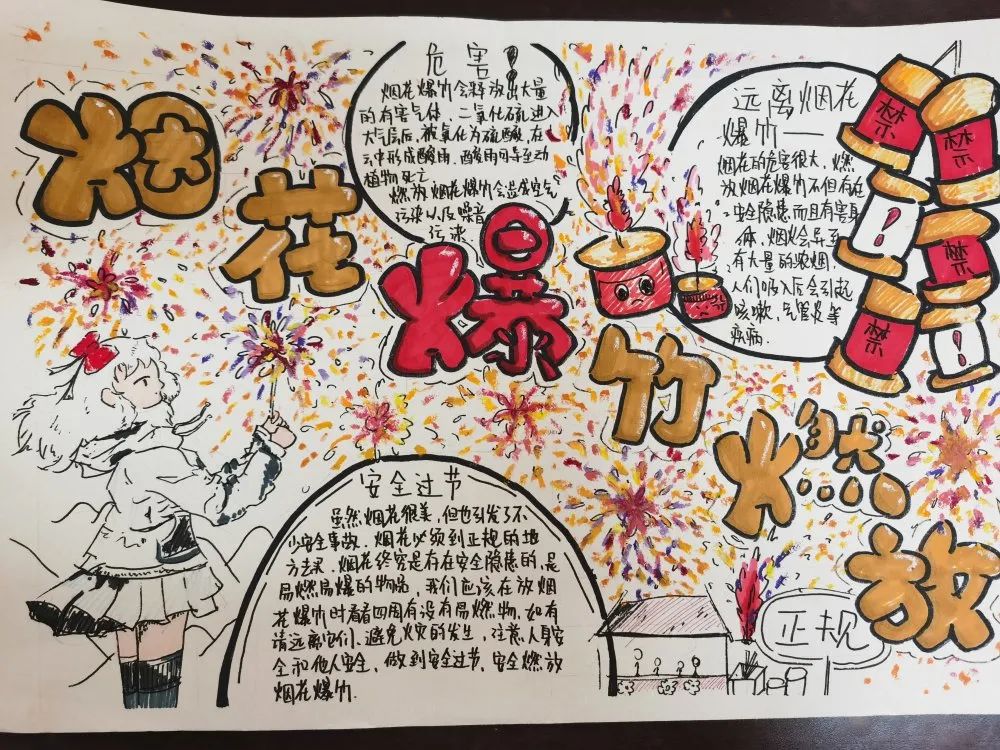 烟
花
爆
竹
燃
放
危害!
烟花爆竹会释放出大量
的有害气体,二氧化硫进入
大气层后,被氧化为硫酸,在
云中形成酸雨,酸雨可导至动
植物死亡
燃放烟花爆竹会造成空气
污染以及噪音
污染.
远离烟花
爆竹——
烟花的危害很大,燃
放烟花爆竹不但存在
安全隐患而且有害身
体,烟火会导至
有大量的浓烟,
人们吸入后会引起
咳嗽、气管炎等
疾病.
禁
禁
!
禁
禁
!
安全过节
虽然烟花很美,但也引发了不
少安全事故,烟花必须到正规的地
方去买,烟花终究是存在安全隐患的,是
易燃易爆的物品,我们应该在放烟
花爆竹时看看四周有没有易燃物,如有
请远离它们,避免火灾的发生,注意人身安
全和他人安全,做到安全过节,安全燃放
烟花爆竹.
正规